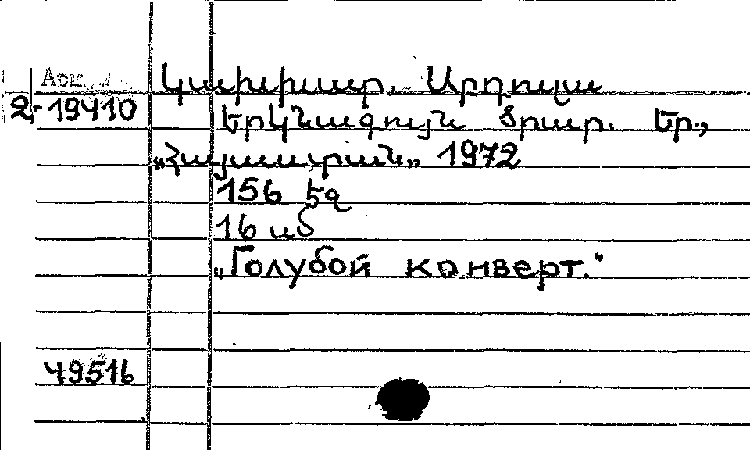 Աշ
Կախիար. Արդուլա
2-19410
Երկնագույն ծրար. Եր.,
„Հայաստան„ 1972
156 էջ
16 սմ
„Голубой конверт."
49516